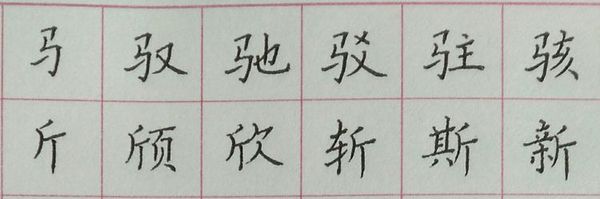 马 驭 驰 驳 驻 骇
斤 颀 欣 斩 斯 新